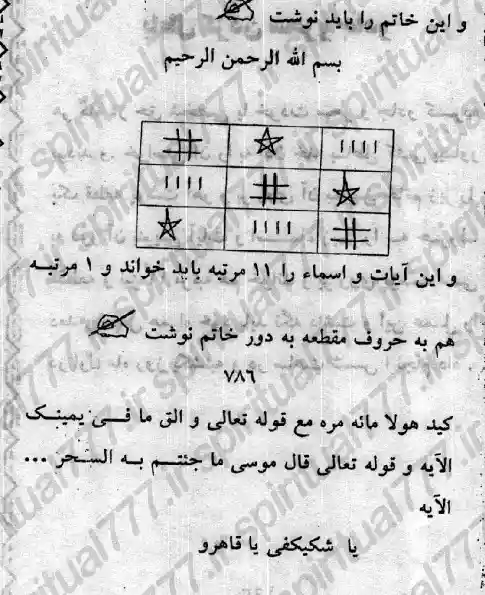 و این خاتم را باید نوشت
بسم الله الرحمن الرحیم
و این آیات و اسماء را ۱۱ مرتبه باید خواند و ۱ مرتبه
هم به حروف مقطعه به دور خاتم نوشت
۷۸۶
کید هولا مائه مره مع قوله تعالی و الق ما فی یمینک
الآیه و قوله تعالی قال موسی ما جئتم به السحر ...
الآیه
یا شکیکفی یا قاهرو
spiritual777.ir